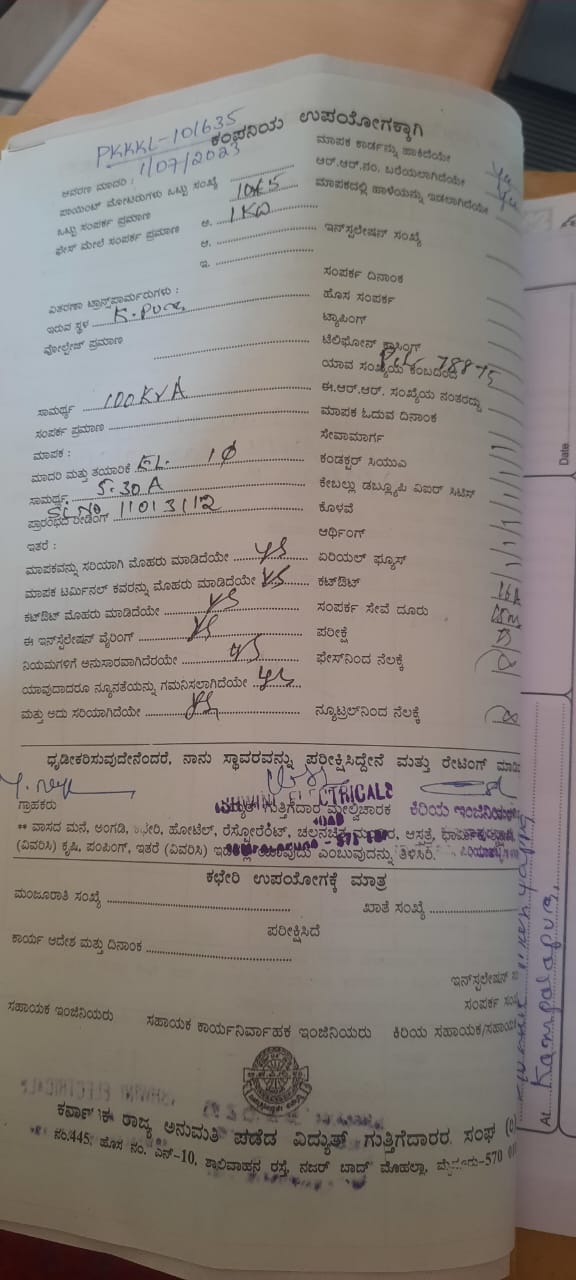 PKKKL-101635
1/07/2023
ಕಂಪನಿಯ ಉಪಯೋಗಕ್ಕಾಗಿ
ಆವರಣ ಮಾದರಿ :
ಮಾಪಕ ಕಾರ್ಡನ್ನು ಹಾಕಿದೆಯೇ
ಪಾಯಿಂಟ್ ಮೋಟರುಗಳು ಒಟ್ಟು ಸಂಖ್ಯೆ
ಆರ್.ಆರ್.ನಂ. ಬರೆಯಲಾಗಿದೆಯೇ
ಒಟ್ಟು ಸಂಪರ್ಕ ಪ್ರಮಾಣ
ಮಾಪಕದಲ್ಲಿ ಹಾಳೆಯನ್ನು ಇಡಲಾಗಿದೆಯೇ
ಫೇಸ್ ಮೇಲೆ ಸಂಪರ್ಕ ಪ್ರಮಾಣ ಅ. 1KW
ಆ.
ಇನ್‌ಸ್ಟಲೇಷನ್ ಸಂಖ್ಯೆ
ಇ.
ಸಂಪರ್ಕ ದಿನಾಂಕ
ವಿತರಣಾ ಟ್ರಾನ್ಸ್‌ಫಾರ್ಮರುಗಳು :
ಹೊಸ ಸಂಪರ್ಕ
ಇರುವ ಸ್ಥಳ K. Pura
ಟ್ಯಾಪಿಂಗ್
ವೋಲ್ಟೇಜ್ ಪ್ರಮಾಣ
ಟೆಲಿಫೋನ್ ಕ್ರಾಸಿಂಗ್
ಯಾವ ಸಂಖ್ಯೆಯ ಕಂಬದಿಂದ 78875
ಸಾಮರ್ಥ್ಯ 100KVA
ಈ.ಆರ್.ಆರ್. ಸಂಖ್ಯೆಯ ನಂತರದ್ದು
ಸಂಪರ್ಕ ಪ್ರಮಾಣ
ಮಾಪಕ ಓದುವ ದಿನಾಂಕ
ಮಾಪಕ :
ಸೇವಾಮಾರ್ಗ
ಮಾದರಿ ಮತ್ತು ತಯಾರಿಕೆ EL. 1Ø
ಕಂಡಕ್ಟರ್ ಸಿಯುವಿ
ಸಾಮರ್ಥ್ಯ 5-30A
ಕೇಬಲ್ಲು ಡಬ್ಲ್ಯೂಪಿ ವಿಐರ್ ಸಿಟಿಸ್
ಪ್ರಾರಂಭದ ರೀಡಿಂಗ್ Sl.No 11013112
ಕೊಳವೆ
ಇತರೆ :
ಆರ್ಥಿಂಗ್
ಮಾಪಕವನ್ನು ಸರಿಯಾಗಿ ಮೊಹರು ಮಾಡಿದೆಯೇ ys
ಏರಿಯಲ್ ಫ್ಯೂಸ್
ಮಾಪಕ ಟರ್ಮಿನಲ್ ಕವರನ್ನು ಮೊಹರು ಮಾಡಿದೆಯೇ ys
ಕಟ್‌ಔಟ್
ಕಟ್‌ಔಟ್ ಮೊಹರು ಮಾಡಿದೆಯೇ ys
ಸಂಪರ್ಕ ಸೇವೆ ದೂರು
ಈ ಇನ್‌ಸ್ಟಲೇಷನ್ ವೈರಿಂಗ್ ys
ಪರೀಕ್ಷೆ
ನಿಯಮಗಳಿಗೆ ಅನುಸಾರವಾಗಿದೆರಯೇ ys
ಫೇಸ್‌ನಿಂದ ನೆಲಕ್ಕೆ
ಯಾವುದಾದರೂ ನ್ಯೂನತೆಯನ್ನು ಗಮನಿಸಲಾಗಿದೆಯೇ ys
ಮತ್ತು ಅದು ಸರಿಯಾಗಿದೆಯೇ ys
ನ್ಯೂಟ್ರಲ್‌ನಿಂದ ನೆಲಕ್ಕೆ
ಧೃಡೀಕರಿಸುವುದೇನೆಂದರೆ, ನಾನು ಸ್ಥಾವರವನ್ನು ಪರೀಕ್ಷಿಸಿದ್ದೇನೆ ಮತ್ತು ರೇಟಿಂಗ್
ELECTRICALS
ಗ್ರಾಹಕರು
ವಿದ್ಯುತ್ ಗುತ್ತಿಗೆದಾರ ಮೇಲ್ವಿಚಾರಕ
ಕಿರಿಯ ಇಂಜಿನಿಯರ್
** ವಾಸದ ಮನೆ, ಅಂಗಡಿ, ಕಛೇರಿ, ಹೋಟೆಲ್, ರೆಸ್ಟೋರೆಂಟ್, ಚಲನಚಿತ್ರ ಮಂದಿರ, ಆಸ್ಪತ್ರೆ,
(ವಿವರಿಸಿ) ಕೃಷಿ, ಪಂಪಿಂಗ್, ಇತರೆ (ವಿವರಿಸಿ) ಎಂಬುವುದನ್ನು ತಿಳಿಸಿರಿ.
ಕಛೇರಿ ಉಪಯೋಗಕ್ಕೆ ಮಾತ್ರ
ಮಂಜೂರಾತಿ ಸಂಖ್ಯೆ
ಖಾತೆ ಸಂಖ್ಯೆ
ಪರೀಕ್ಷಿಸಿದೆ
ಕಾರ್ಯ ಆದೇಶ ಮತ್ತು ದಿನಾಂಕ
ಇನ್‌ಸ್ಟಲೇಷನ್
ಸಂಪರ್ಕ
ಸಹಾಯಕ ಇಂಜಿನಿಯರು
ಸಹಾಯಕ ಕಾರ್ಯನಿರ್ವಾಹಕ ಇಂಜಿನಿಯರು
ಕಿರಿಯ ಸಹಾಯಕ/ಸಹಾಯಕ
ಕರ್ನಾಟಕ ರಾಜ್ಯ ಅನುಮತಿ ಪಡೆದ ವಿದ್ಯುತ್ ಗುತ್ತಿಗೆದಾರರ ಸಂಘ
ನಂ.445, ಹೊಸ ನಂ. ಎನ್-10, ಶಾಲಿವಾಹನ ರಸ್ತೆ, ನಜರ್ ಬಾದ್ ಮೊಹಲ್ಲಾ, ಮೈಸೂರು-570
Date
At. Kampalapura,